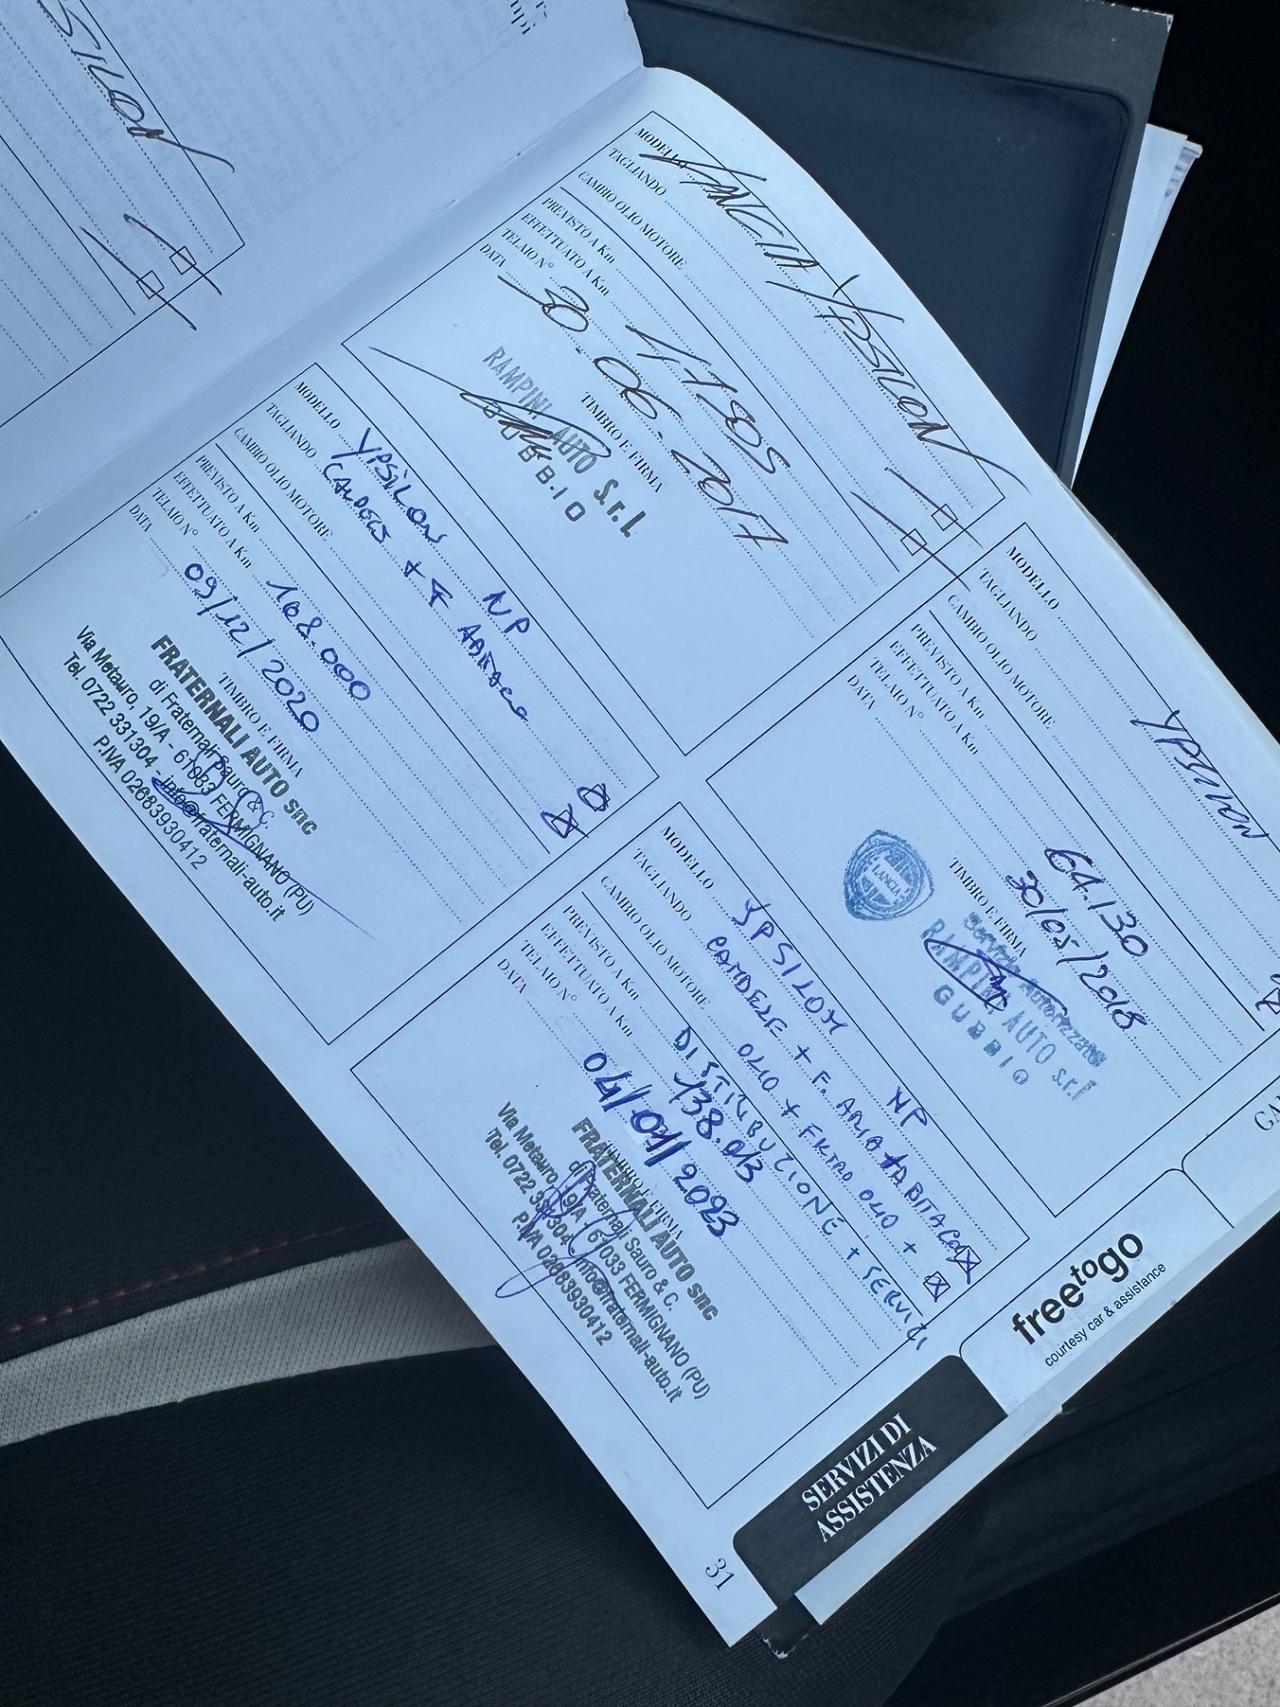 SILON
MODELLO LANCIA YPSILON
TAGLIANDO
CAMBIO OLIO MOTORE
PREVISTO A Km
EFFETTUATO A Km
TELAIO N°
DATA 30.06.2017
TIMBRO E FIRMA
RAMPINI AUTO S.r.l
GUBBIO
MODELLO YPSILON
TAGLIANDO
CAMBIO OLIO MOTORE
PREVISTO A Km
EFFETTUATO A Km 64.130
TELAIO N°
DATA 30/05/2018
TIMBRO E FIRMA
LANCIA
Servizio Autorizzato
RAMPINI AUTO s.r.l
GUBBIO
MODELLO YPSILON NP
TAGLIANDO
CAMBIO OLIO MOTORE
PREVISTO A Km
EFFETTUATO A Km 108.000
TELAIO N°
DATA 09/12/2020
TIMBRO E FIRMA
FRATERNALI AUTO snc
di Fraternali Sauro & C.
Via Metauro, 19/A - 61033 FERMIGNANO (PU)
Tel. 0722 331304 - info@fraternali-auto.it
P.IVA 02683930412
MODELLO YPSILON NP
TAGLIANDO CANDELE + F. ARIA + ABITACOLO
CAMBIO OLIO MOTORE OLIO + FILTRO OLIO +
PREVISTO A Km DISTRIBUZIONE + SERVIZI
EFFETTUATO A Km 138.013
TELAIO N°
DATA 04/01/2023
TIMBRO E FIRMA
FRATERNALI AUTO snc
di Fraternali Sauro & C.
Via Metauro, 19/A - 61033 FERMIGNANO (PU)
Tel. 0722 331304 - info@fraternali-auto.it
P.IVA 02683930412
freetogo
courtesy car & assistance
SERVIZI DI
ASSISTENZA
31